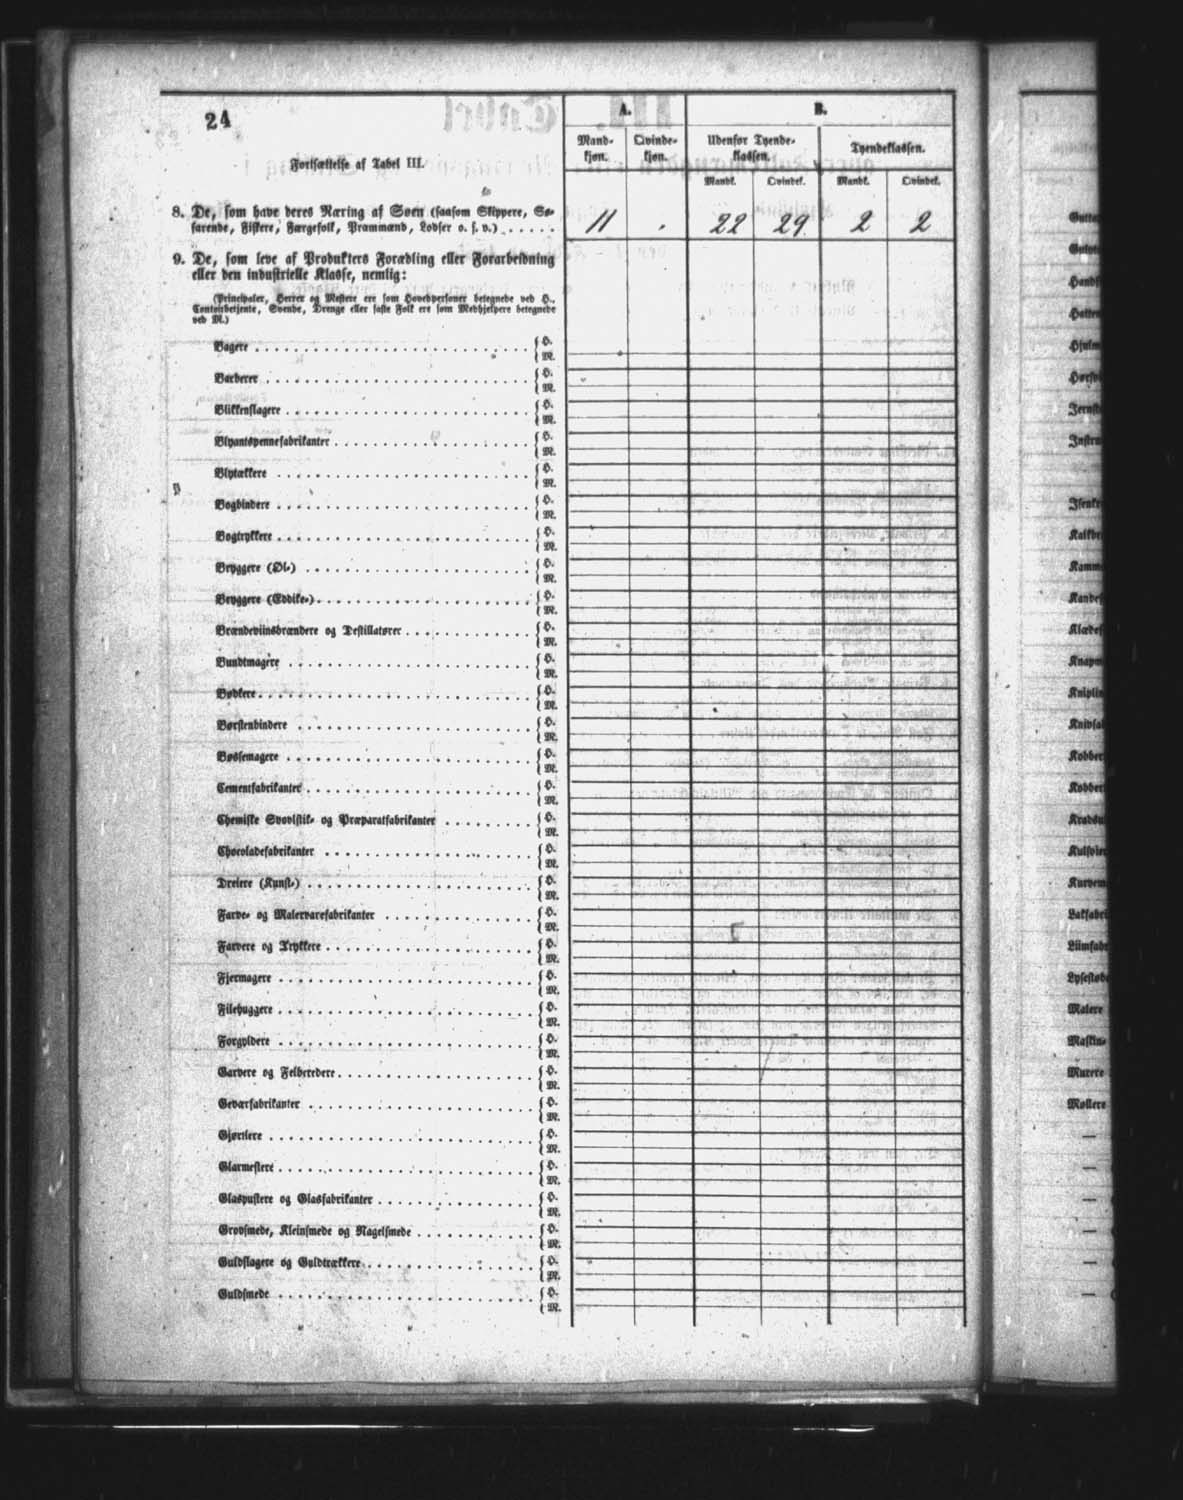 24
Fortsættelse af Tabel III.
A.
B.
Mand-
kjøn.
Qvinde-
kjøn.
Udenfor Tyende-
klassen.
Tyendeklassen.
Mandk.
Qvindek.
Mandk.
Qvindek.
8. De, som have deres Næring af Søen (saasom Skippere, Sø-
farende, Fiskere, Færgefolk, Prammænd, Lodser o. s. v.) . . . . . 11 . 22 29 2 2
9. De, som leve af Produkters Forædling eller Forarbeidning
eller den industrielle Klasse, nemlig:
(Principaler, Herrer og Mestere ere som Hovedpersoner betegnede ved H.,
Contoirbetjente, Svende, Drenge eller faste Folk ere som Medhjelpere betegnede
ved M.)
Bagere { H.
{ M.
Barberer { H.
{ M.
Blikkenslagere { H.
{ M.
Blyantspennefabrikanter { H.
{ M.
Blytækkere { H.
{ M.
Bogbindere { H.
{ M.
Bogtrykkere { H.
{ M.
Bryggere (Øl-) { H.
{ M.
Bryggere (Eddike-) { H.
{ M.
Brændeviinsbrændere og Destillatører { H.
{ M.
Bundtmagere { H.
{ M.
Bødkere { H.
{ M.
Børstenbindere { H.
{ M.
Bøssemagere { H.
{ M.
Cementfabrikanter { H.
{ M.
Chemiske Svovlstik- og Præparatfabrikanter { H.
{ M.
Chocoladefabrikanter { H.
{ M.
Dreiere (Kunst-) { H.
{ M.
Farve- og Malervarefabrikanter { H.
{ M.
Farvere og Trykkere { H.
{ M.
Fjermagere { H.
{ M.
Filehuggere { H.
{ M.
Forgyldere { H.
{ M.
Garvere og Felberedere { H.
{ M.
Geværfabrikanter { H.
{ M.
Gjørtlere { H.
{ M.
Glarmestere { H.
{ M.
Glaspustere og Glasfabrikanter { H.
{ M.
Grovsmede, Kleinsmede og Nagelsmede { H.
{ M.
Guldslagere og Guldtrækkere { H.
{ M.
Guldsmede { H.
{ M.
Malere
Murere
Møllere